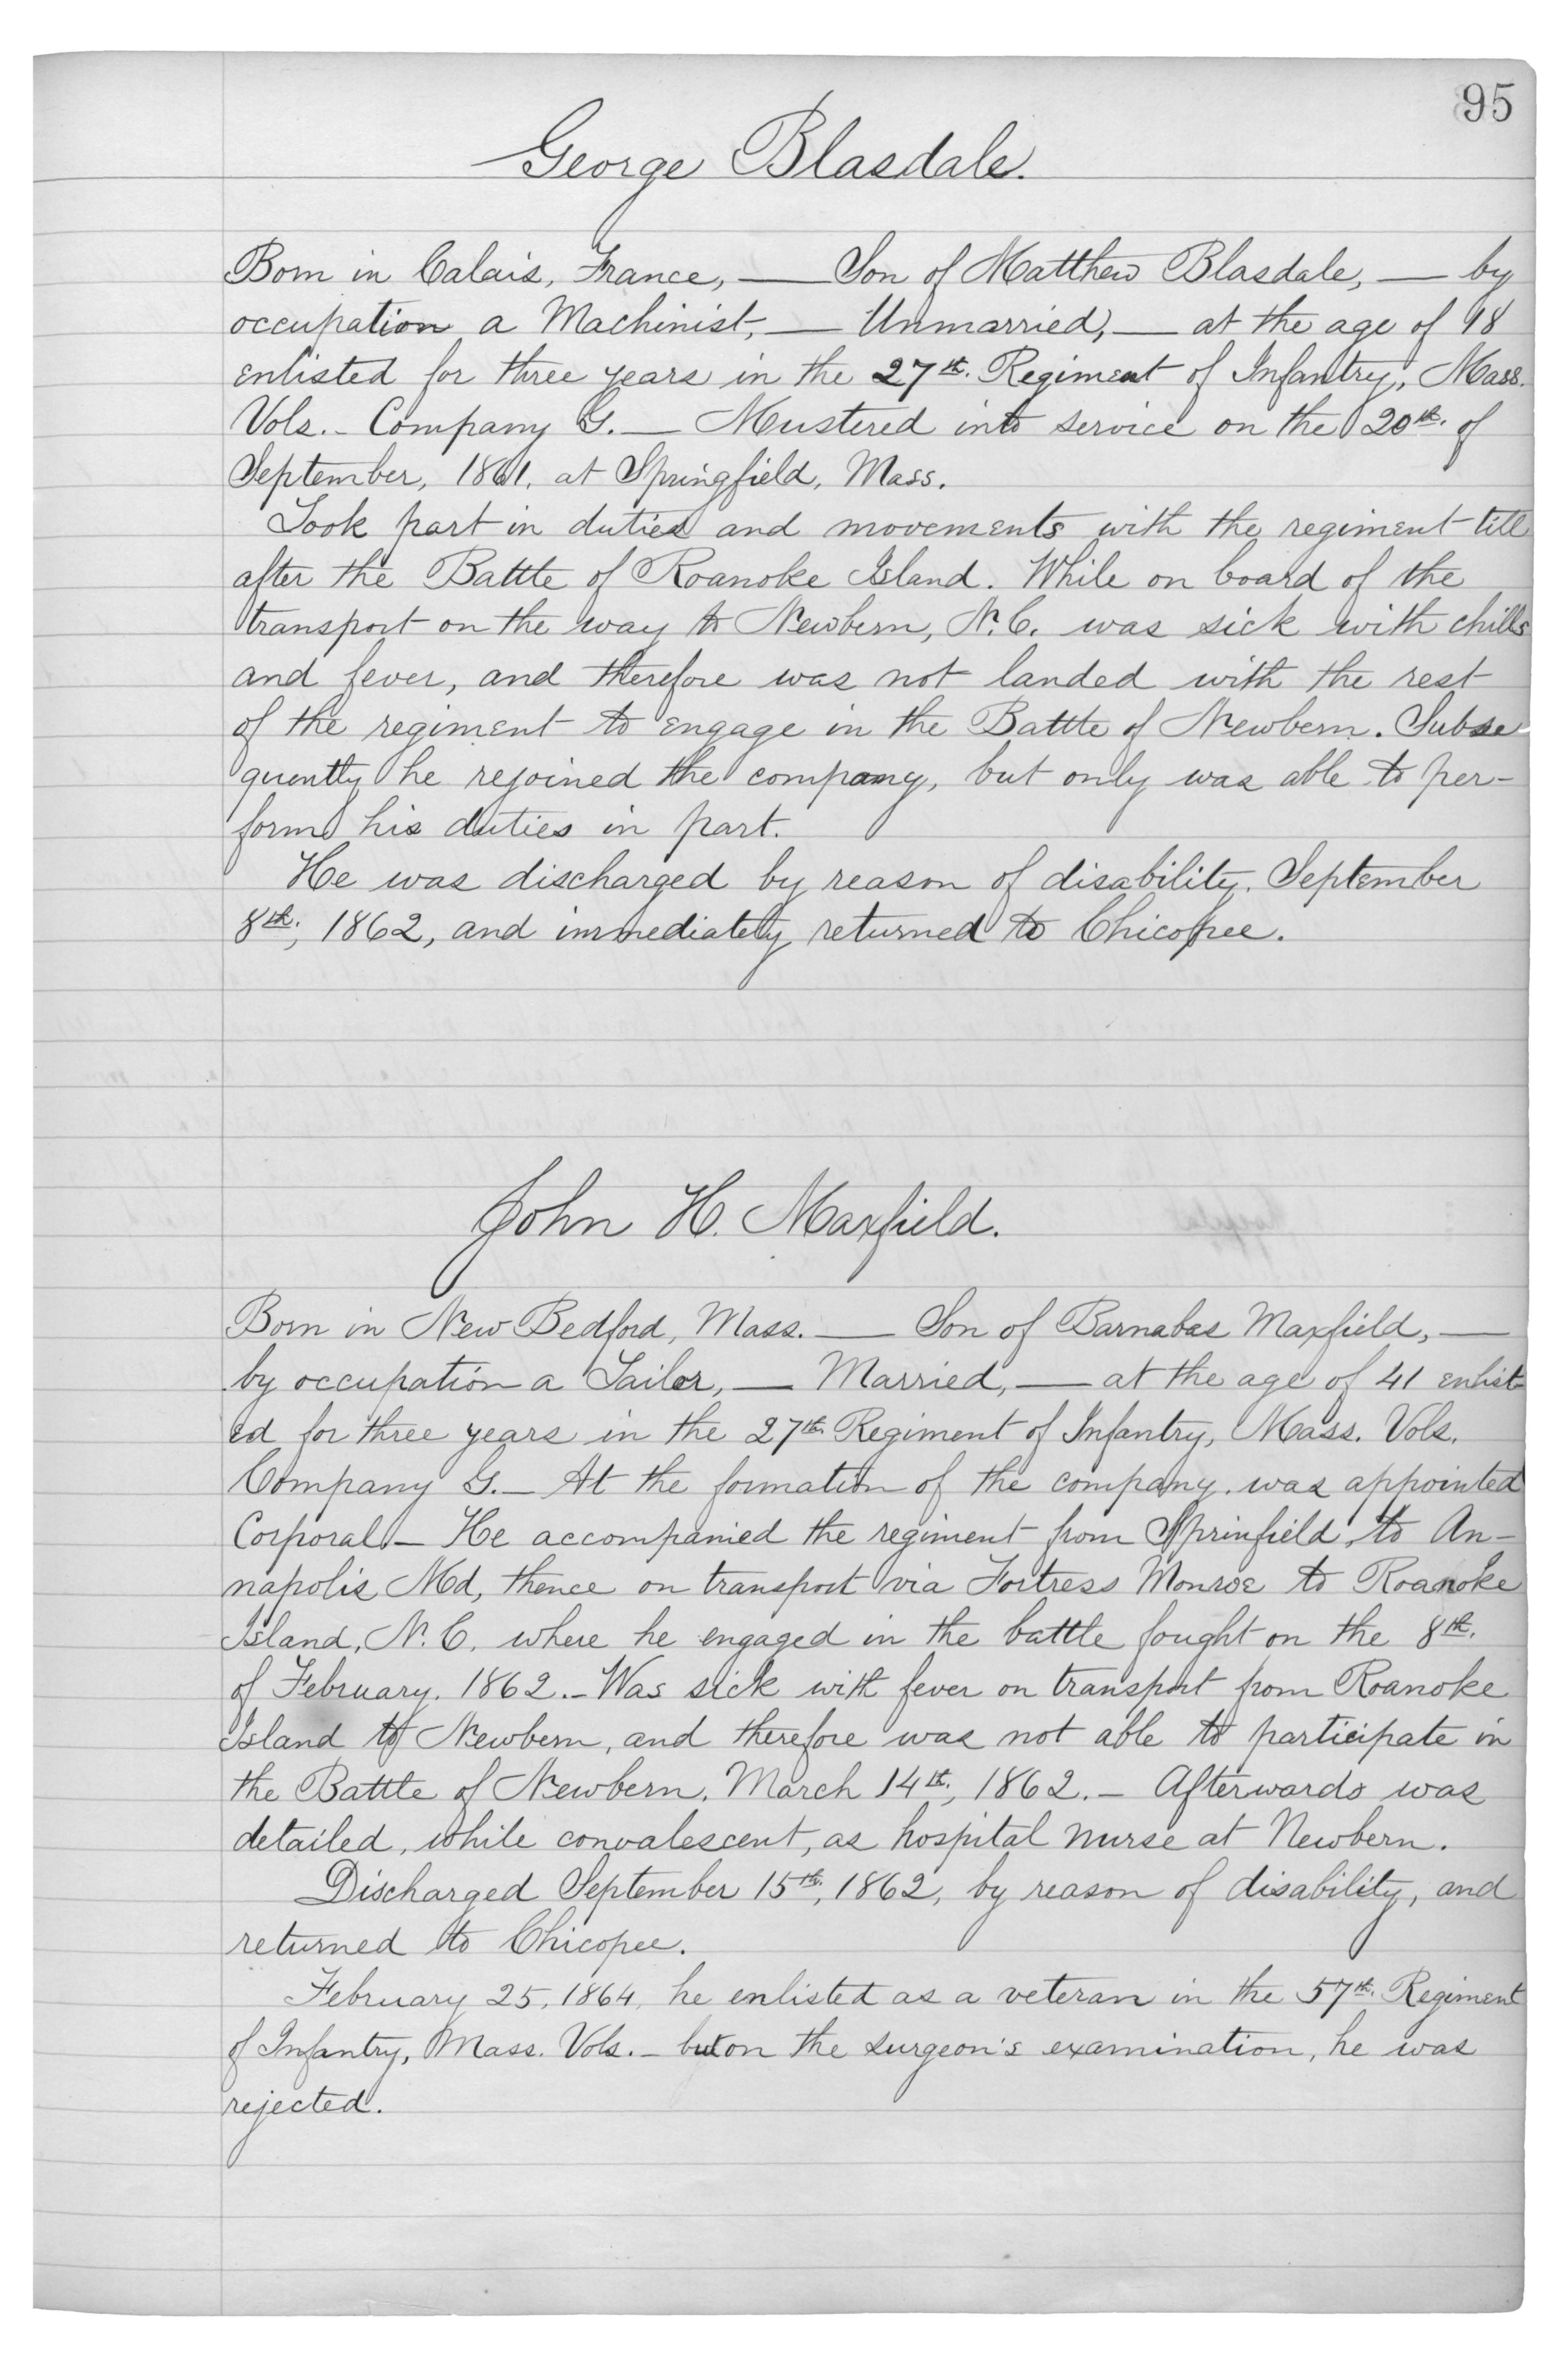 95
George Blasdale.
Born in Calais, France, — Son of Matthew Blasdale, — by
occupation a Machinist, — Unmarried, — at the age of 18
enlisted for three years in the 27th. Regiment of Infantry, Mass.
Vols. - Company G. — Mustered into service on the 20th. of
September, 1861, at Springfield, Mass.
Took part in duties and movements with the regiment till
after the Battle of Roanoke Island. While on board of the
transport on the way to Newbern, N.C. was sick with chills
and fever, and therefore was not landed with the rest
of the regiment to engage in the Battle of Newbern. Subse-
quently he rejoined the company, but only was able to per-
form his duties in part.
He was discharged by reason of disability. September
8th., 1862, and immediately returned to Chicopee.
John H. Maxfield.
Born in New Bedford, Mass. — Son of Barnabas Maxfield, —
by occupation a Sailor, — Married, — at the age of 41 enlist-
ed for three years in the 27th. Regiment of Infantry, Mass. Vols.
Company G. — At the formation of the company, was appointed
Corporal. — He accompanied the regiment from Sprinfield, to An-
napolis Md, thence on transport via Fortress Monroe to Roanoke
Island, N.C. where he engaged in the battle fought on the 8th.
of February, 1862. - Was sick with fever on transport from Roanoke
Island to Newbern, and therefore was not able to participate in
the Battle of Newbern, March 14th., 1862. - Afterwards was
detailed, while convalescent, as hospital nurse at Newbern.
Discharged September 15th., 1862, by reason of disability, and
returned to Chicopee.
February 25, 1864, he enlisted as a veteran in the 57th. Regiment
of Infantry, Mass. Vols. - but on the surgeon's examination, he was
rejected.